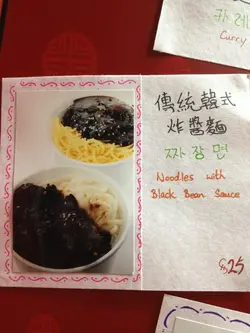 카레
Curry
傳統韓式
炸醬麵
짜장면
Noodles with
Black Bean Sauce